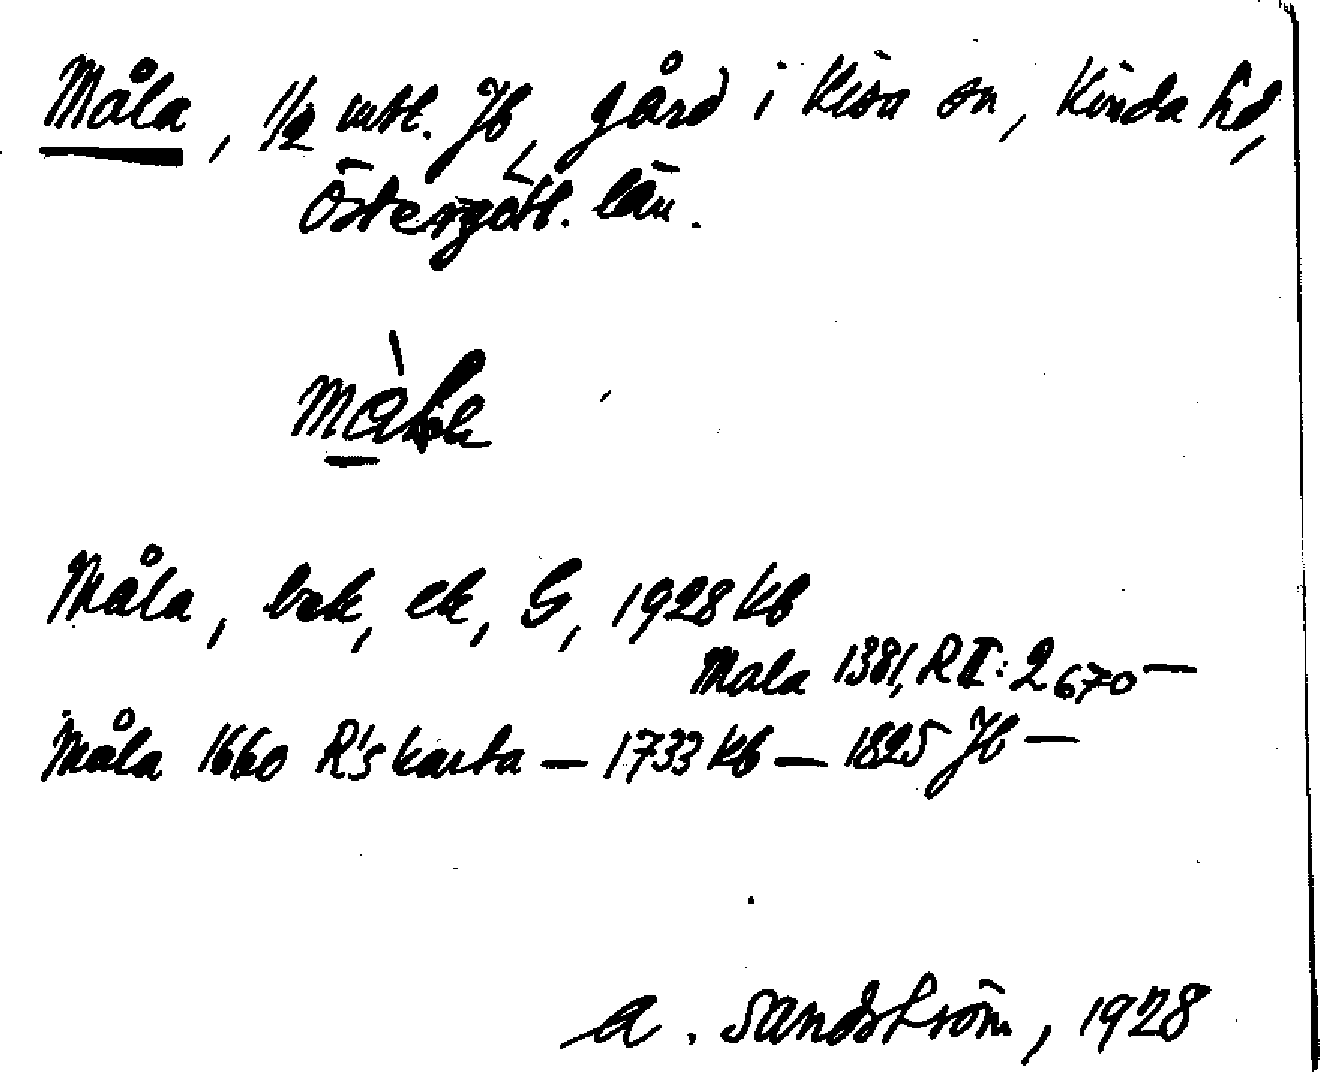 Måla, 1/2 mtl. Jb, gård i Kisa sn, Kinda hd,
Östergötl. län.
Måla, bok, ek, G, 1928 Kb
Mala 1381, R II: 2670 —
Måla 1660 R's karta — 1733 Kb — 1825 Jb —
A. Sandström, 1928